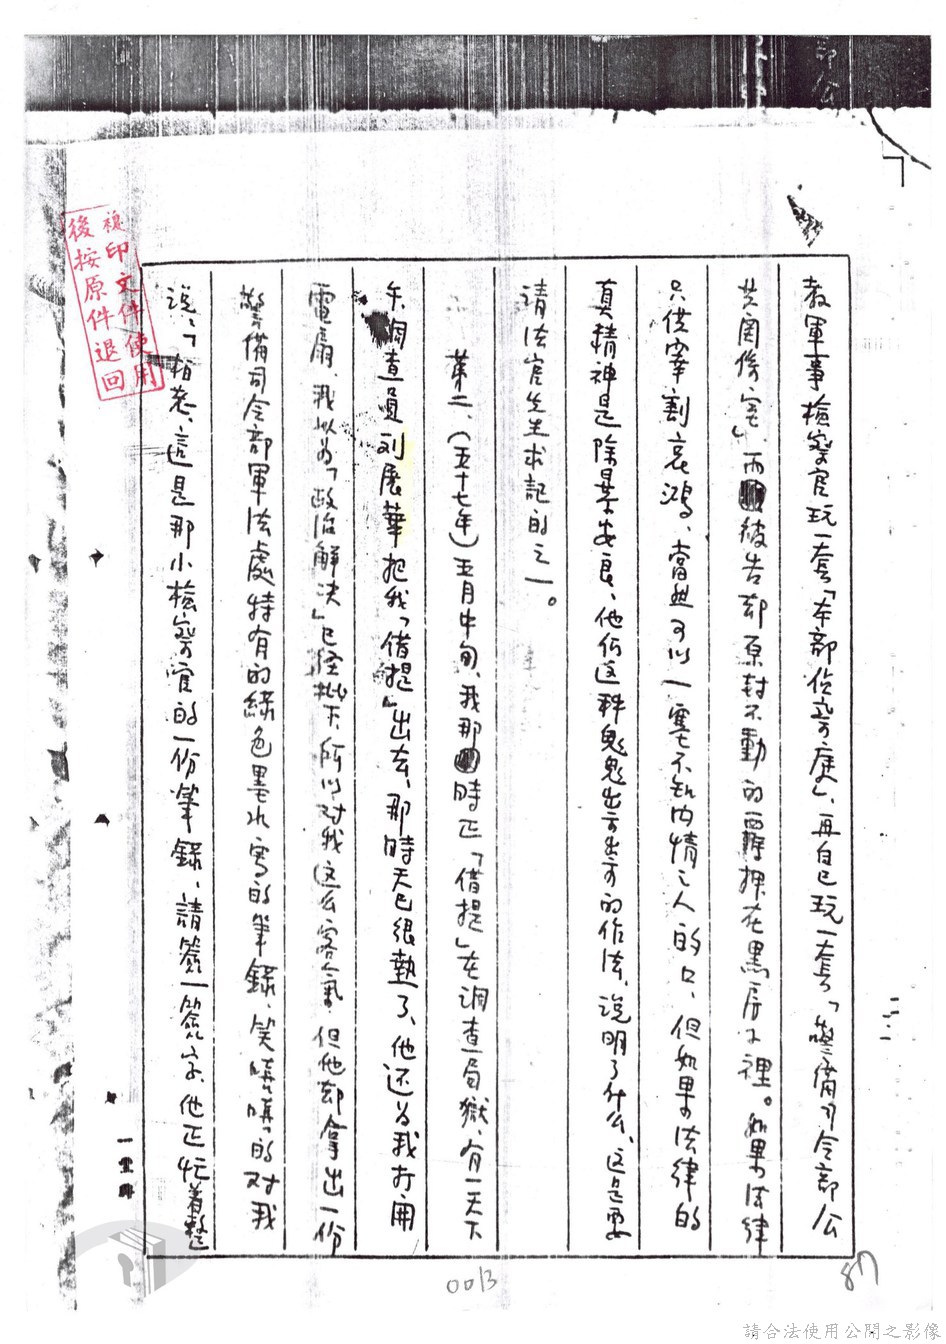 教軍事檢察官玩一套「本部偵察庭」、再自己玩一套「警備司令部公
共関係室」、而被告却原封不動的羈押在黑房子裡。如果法律
只供宰割哀鴻、當然可以一塞不知內情之人的口、但如果法律的
真精神是除暴安良、他们这种鬼鬼出出的作法、說明了什么、这是要
請法官先生求記的之一。
第二、(五十七年)五月中旬、我那時正「借提」在調查局獄、有一天下
午調查員刘展華把我「借提」出去、那時天已很熱了、他还为我打開
電扇、我以为「政治解决」已经批下所以对我这么客氣、但他却拿出一份
警備司令部軍法處特有的綠色墨水寫的筆錄、笑嘻嘻的对我
說:「柏老、這是那小檢察官的一份筆錄、請簽一簽字、他正忙着整
複印文件使用
後按原件退回
0013
87
請合法使用公開之影像